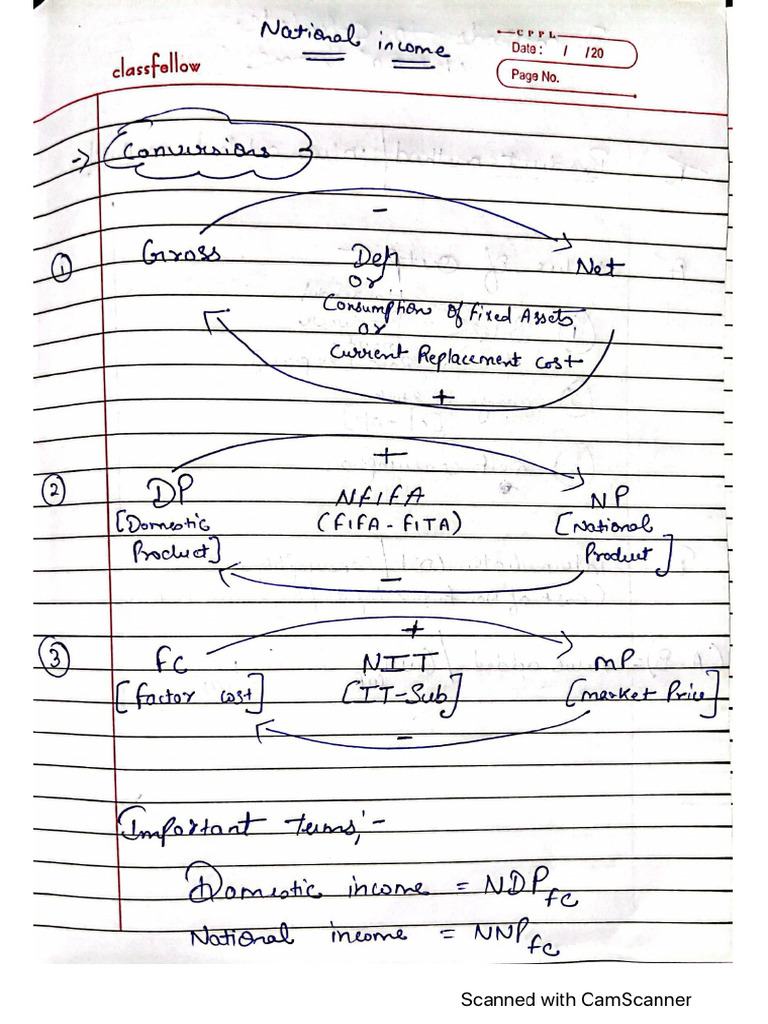 National income
CPPL
Date : / /20
Page No.
classfellow
→ Conversions :
-
① Gross Dep Net
or
Consumption of Fixed Assets
or
Current Replacement cost
+
+
② DP NFIFA NP
[Domestic Product] (FIFA - FITA) [National Product]
-
+
③ FC NIT MP
[Factor cost] [IT-Sub] [market Price]
-
Important terms;-
Domestic income = NDP FC
National income = NNP FC
Scanned with CamScanner